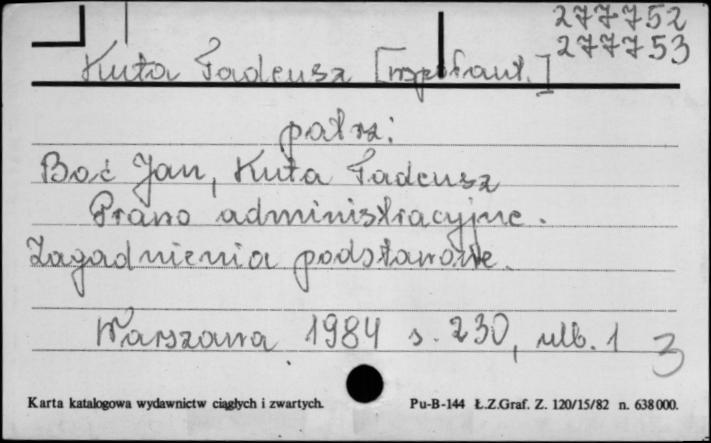 277752
277753
Kuta Tadeusz [współaut.]
patrz:
Boć Jan, Kuta Tadeusz
Prawo administracyjne.
Zagadnienia podstawowe.
Warszawa 1984 s. 230, nlb. 1
3
Karta katalogowa wydawnictw ciągłych i zwartych. Pu-B-144 Ł.Z.Graf. Z. 120/15/82 n. 638000.